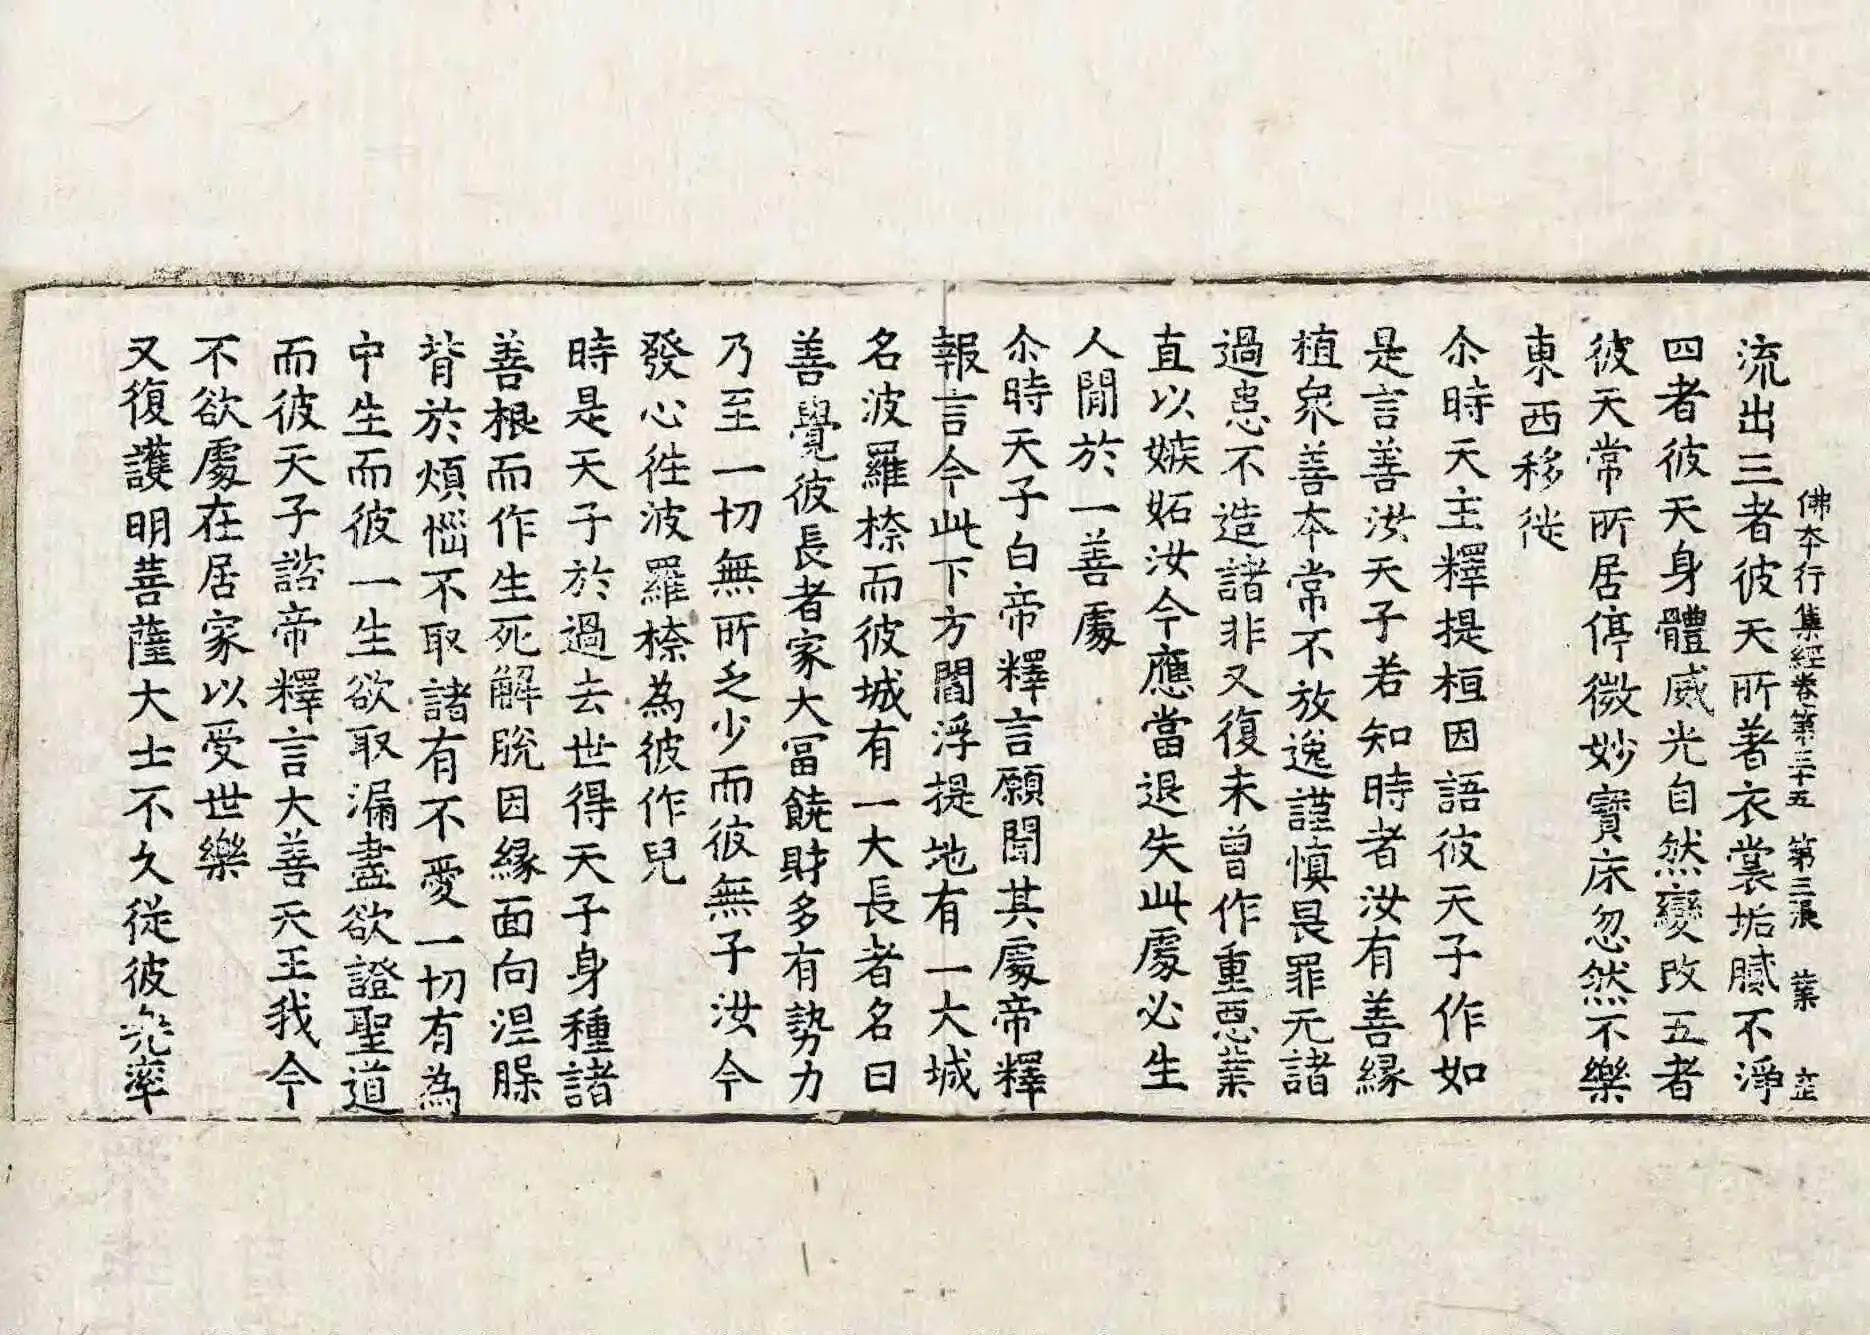 佛本行集經卷第三十五　第三張　業
流出三者彼天所著衣裳垢膩不淨
四者彼天身體威光自然變改五者
彼天常所居停微妙寶床忽然不樂
東西移徙
尒時天主釋提桓因語彼天子作如
是言善汝天子若知時者汝有善緣
植衆善本常不放逸謹慎畏罪无諸
過患不造諸非又復未曾作重惡業
直以嫉妬汝今應當退失此處必生
人間於一善處
尒時天子白帝釋言願聞其處帝釋
報言今此下方閻浮提地有一大城
名波羅㮈而彼城有一大長者名曰
善覺彼長者家大冨饒財多有勢力
乃至一切無所乏少而彼無子汝今
發心徃波羅㮈為彼作兒
時是天子於過去世得天子身種諸
善根而作生死解脫因緣面向涅槃
背於煩惱不取諸有不愛一切有為
中生而彼一生欲取漏盡欲證聖道
而彼天子諮帝釋言大善天王我今
不欲處在居家以受世樂
又復護明菩薩大士不久從彼兜率